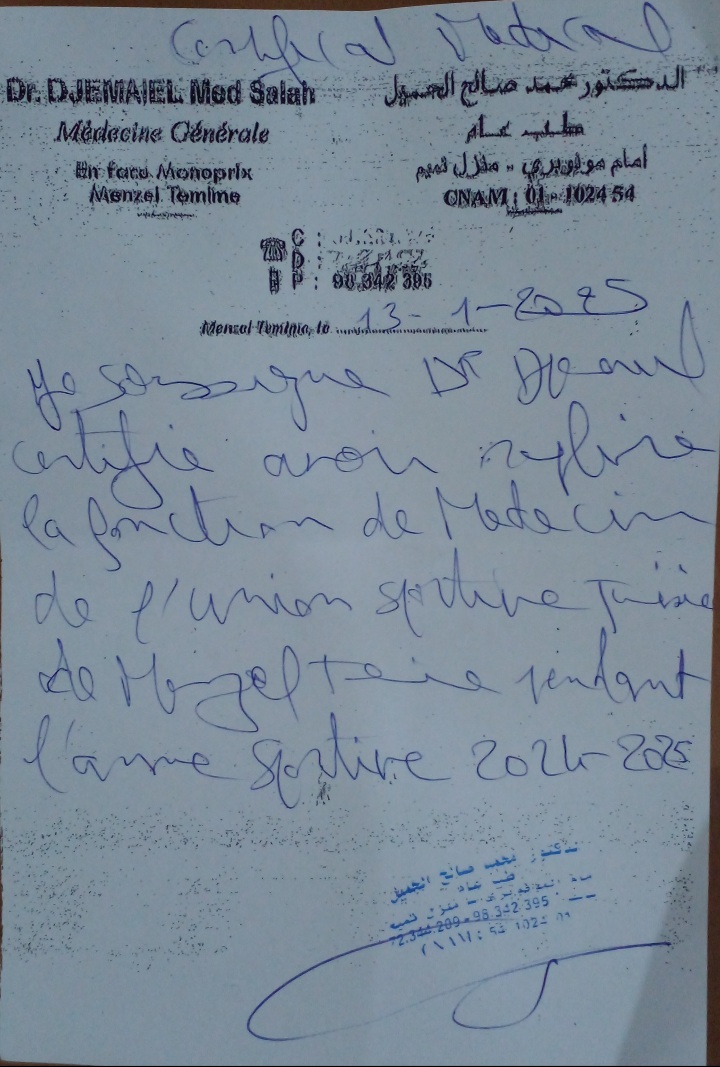 Certifical Medical
Dr. DJEMAIEL Med Salah
الدكتور محمد صالح الجميل
Médecine Générale
طب عام
En face Monoprix
أمام مونوبري - منزل تميم
Menzel Temime
CNAM : 01 - 1024 54
C :
D :
P : 98 342 395
Menzel Temime, le 13-1-2025
Je soussigne Dr
certifie avoir
la fonction de Medecin
de l'union sportive
de Menzel pendant
l'annee sportive 2024-2025
الدكتور محمد صالح الجميل
طب عام
منزل تميم
72.344.209 - 98.342 395
CNAM : 54 1024 01